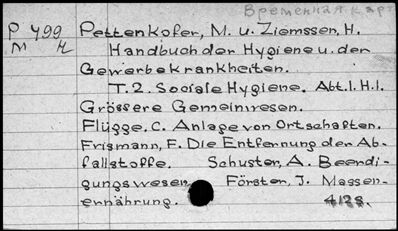 Временная кар
P 499 Pettenkofer, M. u. Ziemssen, H.
M
Handbuch der Hygiene u. der
Gewerbekrankheiten.
T. 2. Sociale Hygiene. Abt. I. H. I.
Grössere Gemeinwesen.
Flügge, C. Anlage von Ortschaften.
Frismann, F. Die Entfernung der Ab-
fallstoffe. Schuster, A. Beerdi-
gungswesen Förster, J. Massen-
ernährung. 4128.